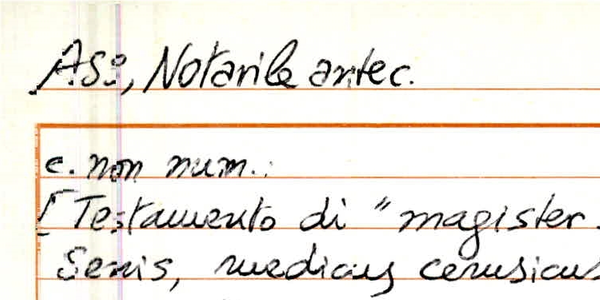 ASS, Notarile antec.
c. non num.:
[Testamento di "magister
Senis, medicus cerusicus